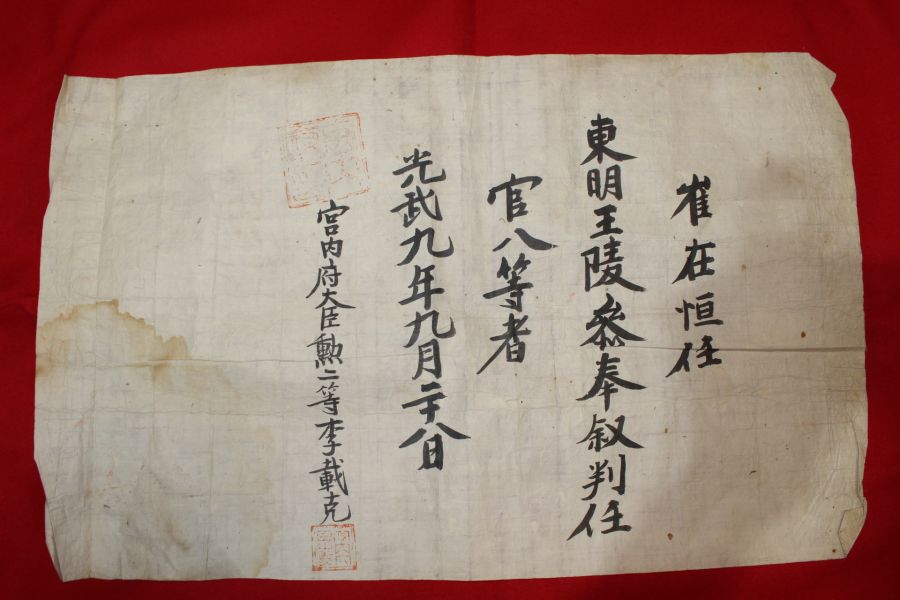 崔在恒任
東明王陵叅奉叙判任
官八等者
光武九年九月二十八日
宮內府大臣勲二等李載克